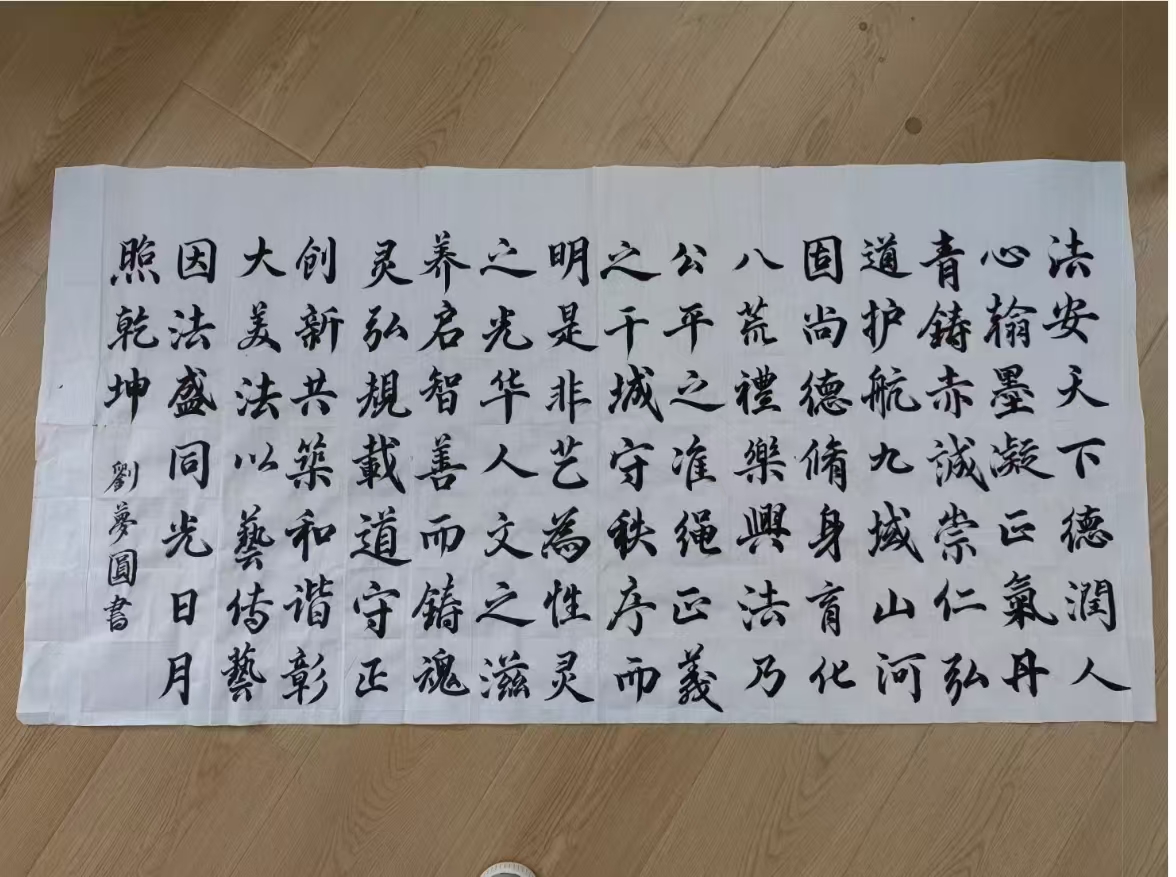 法安天下德潤人
心翰墨凝正氣丹
青鑄赤誠崇仁弘
道护航九域山河
固尚德脩身育化
八荒禮樂興法乃
公平之准绳正義
之干城守秩序而
明是非艺為性灵
之光华人文之滋
养启智善而鋳魂
灵弘規載道守正
创新共築和谐彰
大美法以藝传藝
因法盛同光日月
照乾坤
劉夢圓書